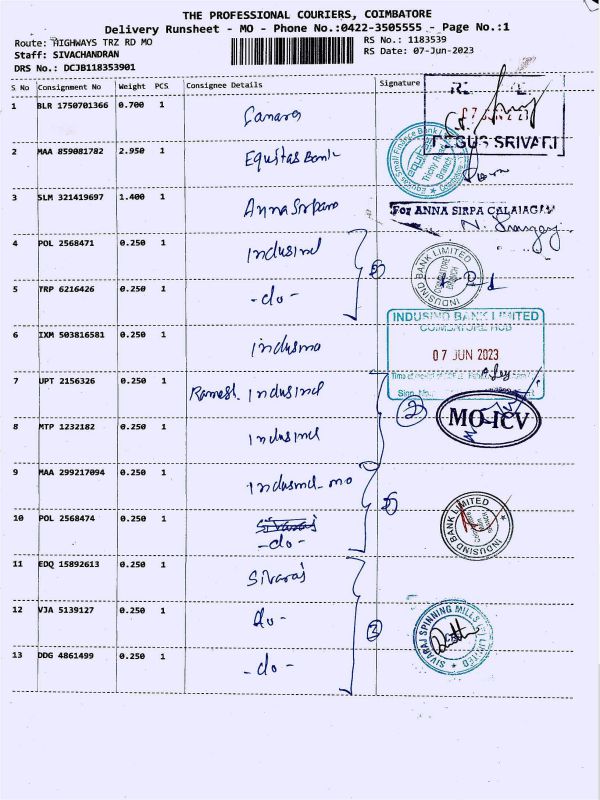 THE PROFESSIONAL COURIERS, COIMBATORE
Delivery Runsheet - MO - Phone No.:0422-3505555 - Page No.:1
Route: HIGHWAYS TRZ RD MO
RS No.: 1183539
Staff: SIVACHANDRAN
RS Date: 07-Jun-2023
DRS No.: DCJB118353901
S No Consignment No Weight PCS Consignee Details Signature
1 BLR 1750701366 0.700 1 Canara
2 MAA 859081782 2.950 1 Equitas Bank
3 SLM 321419697 1.400 1
For ANNA SIRPA
4 POL 2568471 0.250 1 Indusind
5 TRP 6216426 0.250 1 -do-
INDUSIND BANK LIMITED
COIMBATORE BRANCH
6 IXM 503816581 0.250 1
INDUSIND BANK LIMITED
COIMBATORE HUB
07 JUN 2023
7 UPT 2156326 0.250 1 Ramesh Indusind
8 MTP 1232182 0.250 1 Indusind
2
MO-ICV
9 MAA 299217094 0.250 1 Indusind-mo
10 POL 2568474 0.250 1 -do-
INDUSIND BANK LIMITED
11 EDQ 15892613 0.250 1 Sivaraj
12 VJA 5139127 0.250 1 do-
13 DDG 4861499 0.250 1 -do-
SIVARAJ SPINNING MILLS (P) LIMITED